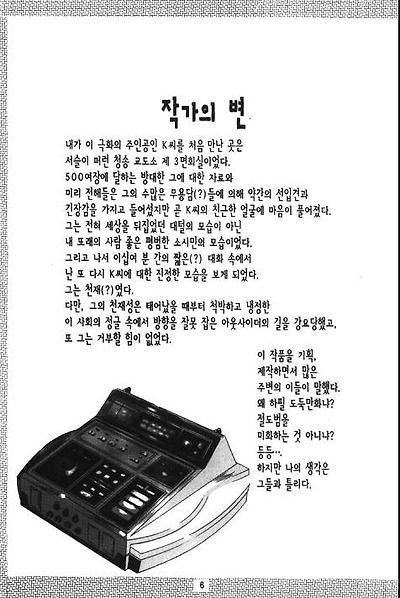 작가의 변
내가 이 극화의 주인공인 K씨를 처음 만난 곳은
서슬이 퍼런 청송 교도소 제 3면회실이었다.
500여장에 달하는 방대한 그에 대한 자료와
미리 전해들은 그의 수많은 무용담(?)들에 의해 약간의 선입견과
긴장감을 가지고 들어섰지만 곧 K씨의 친근한 얼굴에 마음이 풀어졌다.
그는 전혀 세상을 뒤집었던 대털의 모습이 아닌
내 또래의 사람 좋은 평범한 소시민의 모습이었다.
그리고 나서 이십여 분 간의 짧은(?) 대화 속에서
난 또 다시 K씨에 대한 진정한 모습을 보게 되었다.
그는 천재(?)였다.
다만, 그의 천재성은 태어났을 때부터 척박하고 냉정한
이 사회의 정글 속에서 방향을 잘못 잡은 아웃사이더의 길을 강요당했고,
또 그는 거부할 힘이 없었다.
이 작품을 기획,
제작하면서 많은
주변의 이들이 말했다.
왜 하필 도둑만화냐?
절도범을
미화하는 것 아니냐?
등등…
하지만 나의 생각은
그들과 틀리다.
6